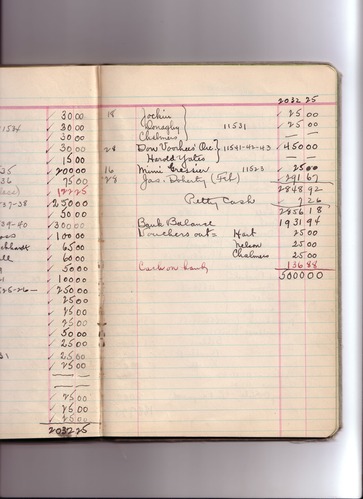 2032 25
30 00
11534
30 00
30 00
30 00
15 00
35
200 00
36
75 00
12 25
37-38
250 00
50 00
39-40
300 00
100 00
65 00
60 00
50 00
100 00
25-26-
250 00
25 00
25 00
25 00
50 00
25 00
25 00
25 00
25 00
25 00
2032 25
18 Jochim 25 00
Donaghy 11531 25 00
Chalmers — —
28 Don Voorhees Orc. } 11541-42-43 450 00
Harold Yates — —
16 11523 25 00
28 Jas. Doherty (Feb) 291 67
2848 92
Petty Cash 7 26
2856 18
Bank Balance 1931 94
Vouchers out = Hart 25 00
Nelson 25 00
Chalmers 25 00
Cash on hand 136 88
5000 00